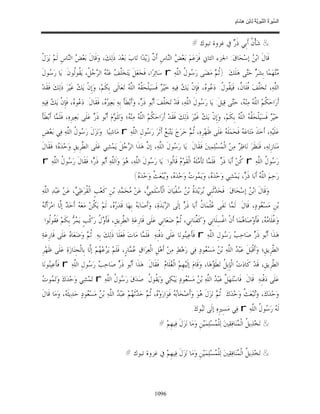 السّيرَةُ النّبَوِيّةُ لابْنِ هِشَامٍ
شَأْنُ أَبِي ذَرّ فِي غَزوة تبوك
قَالَ ابْنُ إسْحَاقَ: الجزء الثاني فَزَعَمَ بَعْضُ النّاسِ أَنّ زَيْدًا تَابَ بَعْدَ ذَلِكَ، وَقَالَ بَعْضُ النّاسِ لَمْ يَزَلْ
مُتّهَمًا بِشَرّ حَتّى هَلَكَ. ثُمّ مَضَى رَسُولُ اللّهِ سَائِرًا، فَجَعَلَ يَتَخَلّفُ عَنْهُ الرّجُلُ، يَقُولُونَ: يَا رَسُولَ
اللّهِ، تَخَلّفَ فُلَانٌ، فَيَقُولُ: دَعُوهُ، فَإِنْ يَكُ فِيهِ خَيْرٌ فَسَيُلْحِقُهُ اللّهُ تَعَالَى بِكُمْ، وَإِنْ يَكُ غَيْرَ ذَلِكَ فَقَدْ
أَرَاحَكُمْ اللّهُ مِنْهُ، حَتّى قِيلَ: يَا رَسُولَ اللّهِ، قَدْ تَخَلّفَ أَبُو ذَرّ، وَأَبْطَأَ بِهِ بَعِيرُهُ، فَقَالَ: دَعُوهُ، فَإِنْ يَكُ فِيهِ
خَيْرٌ فَسَيُلْحِقُهُ اللّهُ بِكُمْ، وَإِنْ يَكُ غَيْرَ ذَلِكَ فَقَدْ أَرَاحَكُمْ اللّهُ مِنْهُ؛ وَتَلَوّمَ أَبُو ذَرّ عَلَى بَعِيرِهِ، فَلَمّا أَبْطَأَ
عَلَيْهِ، أَخَذَ مَتَاعَهُ فَحَمَلَهُ عَلَى ظَهْرِهِ، ثُمّ خَرَجَ يَتْبَعُ أَثَرَ رَسُولِ اللّهِ مَاشِيًا. وَنَزَلَ رَسُولُ اللّهِ فِي بَعْضِ
مَنَازِلِهِ، فَنَظَرَ نَاظِرٌ مِنْ الْمُسْلِمِينَ فَقَالَ: يَا رَسُولَ اللّهِ، إنّ هَذَا الرّجُلَ يَمْشِي عَلَى الطّرِيقِ وَحْدَهُ؛ فَقَالَ
رَسُولُ اللّهِ كُنْ أَبَا ذَرّ. فَلَمّا تَأَمّلَهُ الْقَوْمُ قَالُوا: يَا رَسُولَ اللّهِ، هُوَ وَاَللّهِ أَبُو ذَرّ؛ فَقَالَ رَسُولُ اللّهِ
رَحِمَ اللّهُ أَبَا ذَرّ، يَمْشِي وَحْدَهُ، وَيَمُوتُ وَحْدَهُ، وَيُبْعَثُ وَحْدَهُ
وَقَالَ ابْنُ إسْحَاقَ: فَحَدّثَنِي بُرَيْدَةُ بْنُ سُفْيَانَ الْأَسْلَمِيّ، عَنْ مُحَمّدِ بْنِ كَعْبٍ الْقُرَظِيّ، عَنْ عَبْدِ اللّهِ
بْنِ مَسْعُودٍ، قَالَ: لَمّا نَفَى عُثْمَانُ أَبَا ذَرّ إلَى الرّبَذَةِ، وَأَصَابَهُ بِهَا قَدَرُهُ، لَمْ يَكُنْ مَعَهُ أَحَدٌ إلّا امْرَأَتُهُ
وَغُلَامُهُ، فَأَوْصَاهُمَا أَنْ اغْسِلَانِي وَكَفّنَانِي، ثُمّ ضَعَانِي عَلَى قَارِعَةِ الطّرِيقِ، فَأَوّلُ رَكْبٍ يَمُرّ بِكُمْ فَقُولُوا:
هَذَا أَبُو ذَرّ صَاحِبُ رَسُولِ اللّهِ فَأَعِينُونَا عَلَى دَفْنِهِ. فَلَمّا مَاتَ فَعَلَا ذَلِكَ بِهِ. ثُمّ وَضَعَاهُ عَلَى قَارِعَةِ
الطّرِيقِ، وَأَقْبَلَ عَبْدُ اللّهِ بْنُ مَسْعُودٍ فِي رَهْطٍ مِنْ أَهْلِ الْعِرَاقِ عُمّارٍ، فَلَمْ يَرُعْهُمْ إلّا بِالْجِنَازَةِ عَلَى ظَهْرِ
الطّرِيقِ، قَدْ كَادَتْ الْإِبِلُ تَطَؤُهَا، وَقَامَ إلَيْهِمْ الْغُلَامُ. فَقَالَ: هَذَا أَبُو ذَرّ صَاحِبُ رَسُولِ اللّهِ فَأَعِينُونَا
عَلَى دَفْنِهِ. قَالَ: فَاسْتَهَلّ عَبْدُ اللّهِ بْنُ مَسْعُودٍ يَبْكِي وَيَقُولُ: صَدَقَ رَسُولُ اللّهِ تَمْشِي وَحْدَكَ، وَتَمُوتُ
وَحْدَكَ، وَتُبْعَثُ وَحْدَكَ. ثُمّ نَزَلَ هُوَ وَأَصْحَابُهُ فَوَارَوْهُ، ثُمّ حَدّثَهُمْ عَبْدُ اللّهِ بْنُ مَسْعُودٍ حَدِيثَهُ، وَمَا قَالَ
لَهُ رَسُولُ اللّهِ فِي مَسِيرِهِ إلَى تَبُوكَ.
تَخْذِيلُ الْمُنَافِقِينَ لِلْمُسْلِمَيْنِ وَمَا نَزَلَ فِيهِمْ
تَخْذِيلُ الْمُنَافِقِينَ لِلْمُسْلِمَيْنِ وَمَا نَزَلَ فِيهِمْ في غزوة تبوك
1096